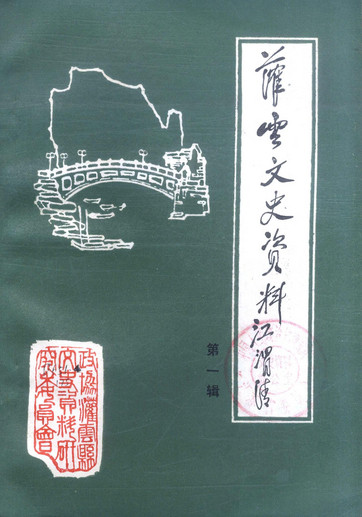 灌云文史资料江渭清
第一辑
政协灌云县
文史资料研
究委员会